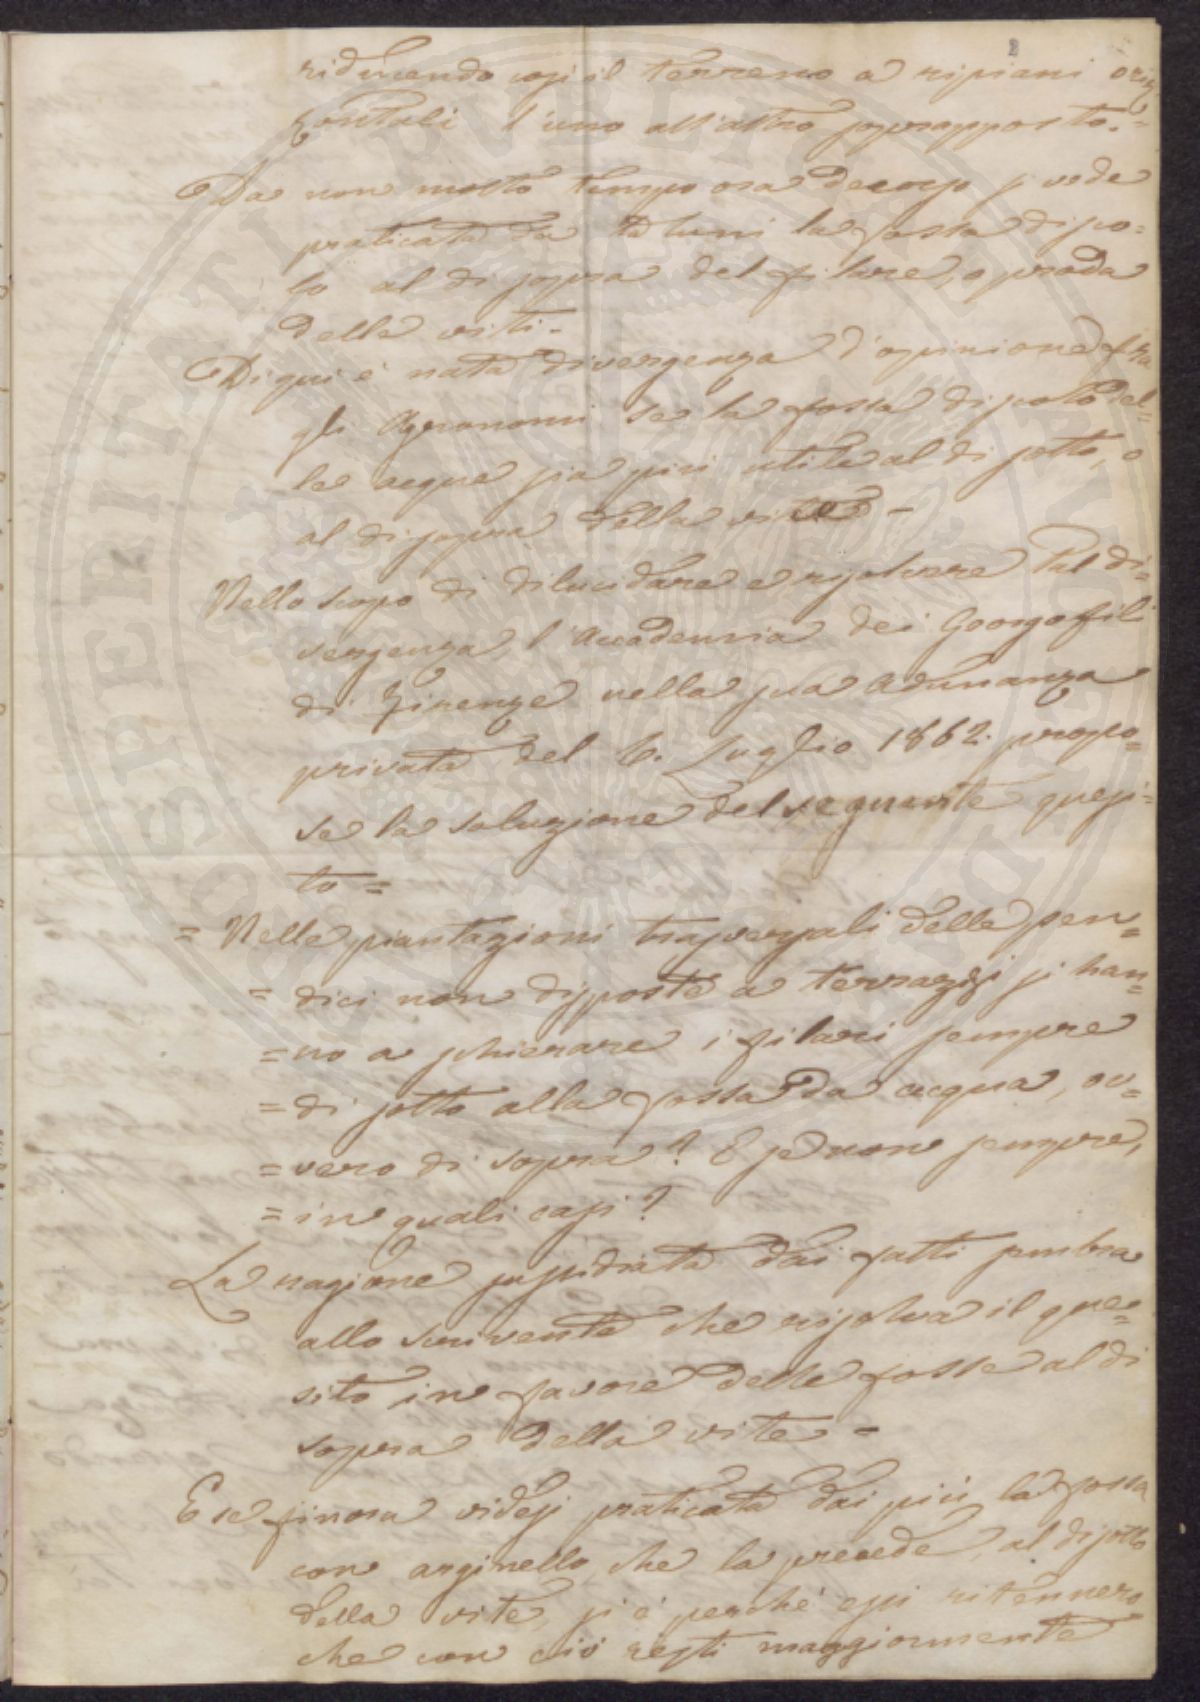 2
riducendo così il terreno a ripiani oriz
zontali l'uno all'altro sovrapposto.=
Da non molto tempo ora decorso si vede
praticata da taluni la fossa di sco=
lo al di sopra del filare, o proda
delle viti.-
Di qui è nata divergenza d'opinione fra
gli Agronomi se la fossa di scolo del=
le acque sia più utile al di sotto, o
al di sopra della vite -
Nello scopo di dilucidare e risolvere tal di=
vergenza l'Accademia dei Georgofili
di Firenze nella sua Adunanza
privata del 6. Luglio 1862. propo=
se la soluzione del seguente quesi=
to =
= Nelle piantazioni trasversali delle pen=
= dici non disposte a terrazzi si han=
= no a schierare i filari sempre
= di sotto alla fossa da acqua, ov=
= vero di sopra? E se non sempre,
= in quali casi?
La ragione sussidiata dai fatti sembra
allo scrivente che risolva il que=
sito in favore delle fosse al di
sopra della vite =
E se finora videsi praticata dai più la fossa
con arginello, che la precede, al di sotto
della vite, si è perché essi ritennero
che con ciò resti maggiormente
PROSPERITATI PUBLICAE AUGENDAE